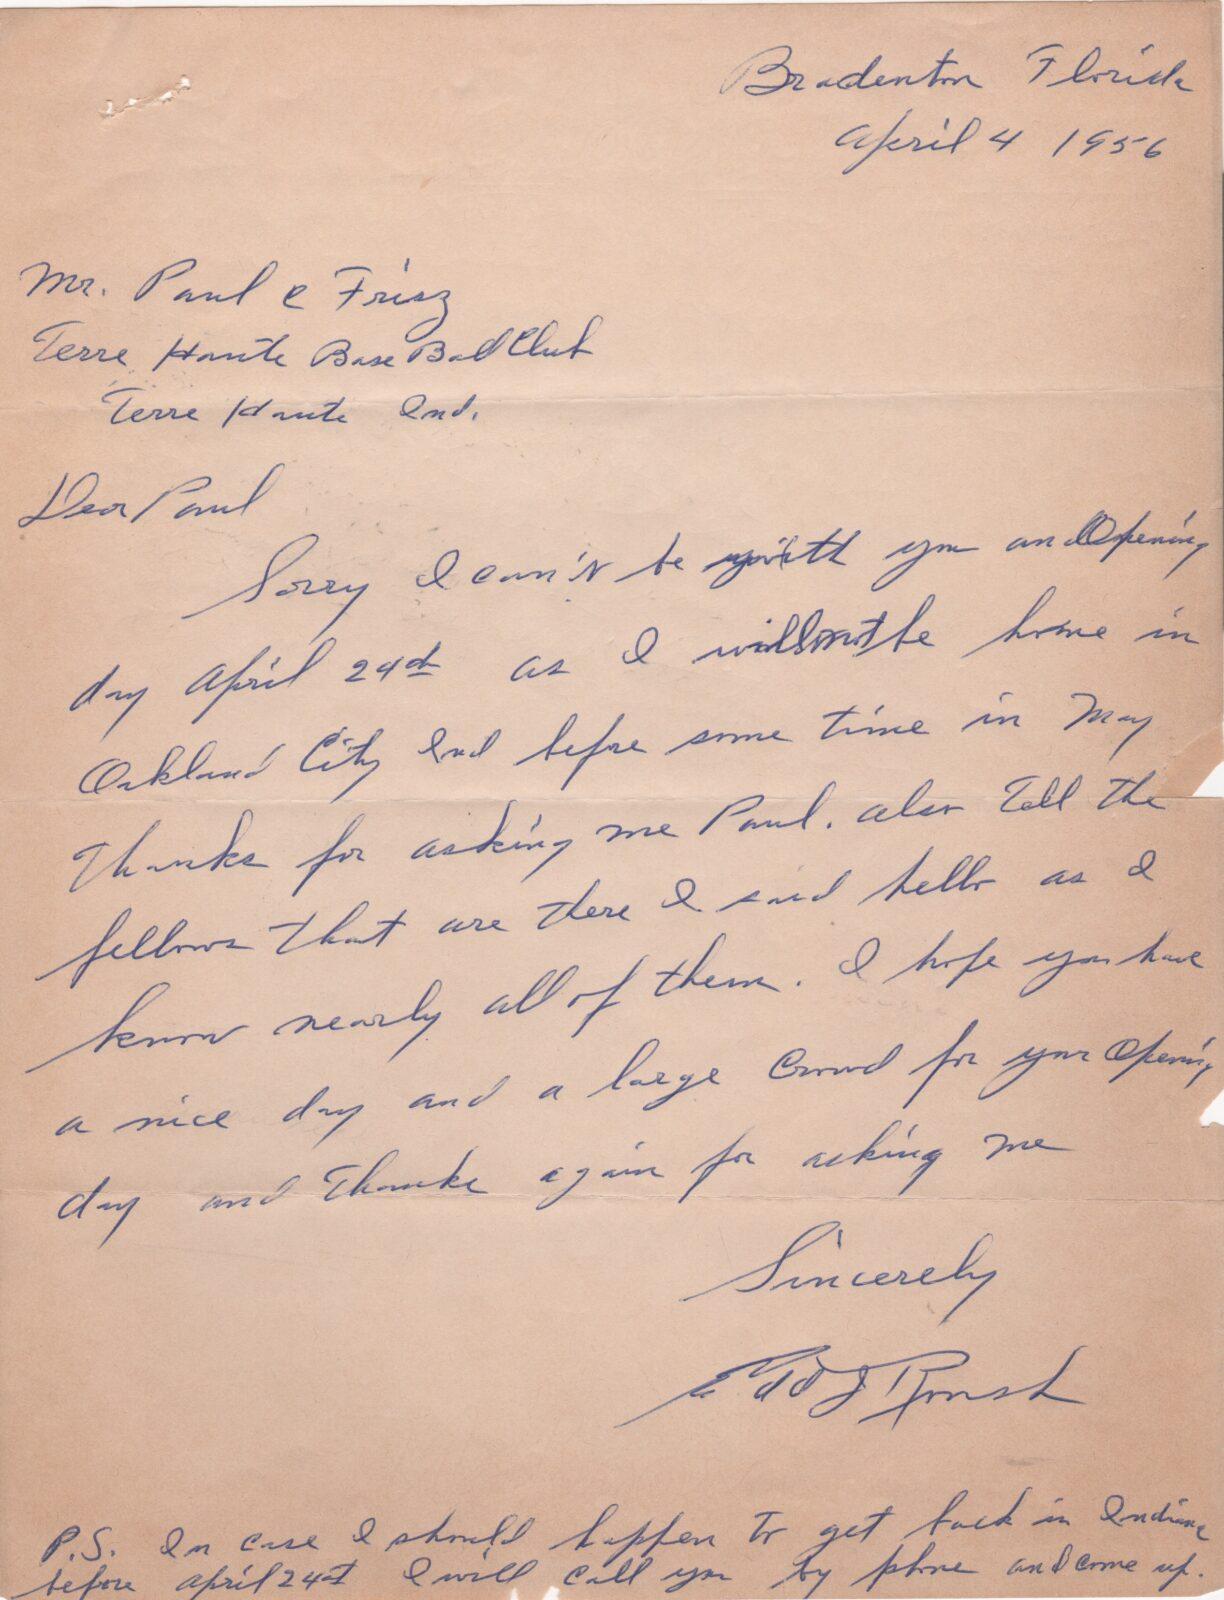 Bradenton Florida
April 4 1956
Mr. Paul C Frisz
Terre Haute Base Ball Club
Terre Haute Ind.
Dear Paul
Sorry I can't be with you and Opening
day April 24th as I will not be home in
Oakland City Ind before some time in May
Thanks for asking me Paul. also Tell the
fellows that are there I said hello as I
know nearly all of them. I hope you have
a nice day and a large crowd for your Opening
day and Thanks again for asking me
Sincerely
Edd J Roush
P.S. In case I should happen to get back in Indiana
before April 24th I will call you by phone and come up.